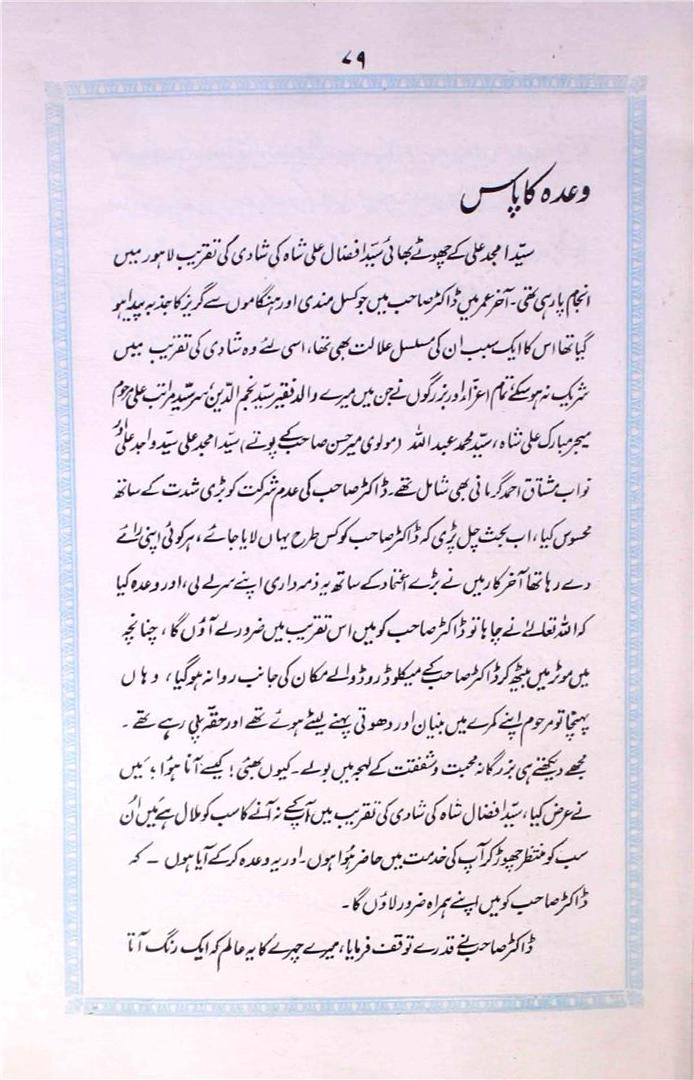 ۷۹
وعدہ کا پاس
سیّد امجد علی کے چھوٹے بھائی سیّد افضال علی شاہ کی شادی کی تقریب لاہور میں
انجام پا رہی تھی۔ آخر عمر میں ڈاکٹر صاحب میں جو کسل مندی اور ہنگاموں سے گریز کا جذبہ پیدا ہو
گیا تھا اس کا ایک سبب ان کی مسلسل علالت بھی تھا، اسی لئے وہ شادی کی تقریب میں
شریک نہ ہو سکے تمام اعزّاء اور بزرگوں نے جن میں میرے والد فقیر سیّد نجم الدّین، سر سیّد مراتب علی مرحوم
میجر مبارک علی شاہ، سیّد محمد عبد اللہ (مولوی میر حسن صاحب کے پوتے) سیّد امجد علی سیّد واجد علی اور
نواب مشتاق احمد گرمانی بھی شامل تھے۔ ڈاکٹر صاحب کی عدم شرکت کو بڑی شدت کے ساتھ
محسوس کیا، اب بحث چل پڑی کہ ڈاکٹر صاحب کو کس طرح یہاں لایا جائے، ہر کوئی اپنی رائے
دے رہا تھا آخر کار میں نے بڑے اعتماد کے ساتھ یہ ذمہ داری اپنے سر لے لی، اور وعدہ کیا
کہ اللہ تعالےٰ نے چاہا تو ڈاکٹر صاحب کو میں اس تقریب میں ضرور لے آؤں گا، چنانچہ
میں موٹر میں بیٹھ کر ڈاکٹر صاحب کے میکلوڈ روڈ والے مکان کی جانب روانہ ہو گیا، وہاں
پہنچا تو مرحوم اپنے کمرے میں بنیان اور دھوتی پہنے لیٹے ہوئے تھے اور حقہ پی رہے تھے۔
مجھے دیکھتے ہی بزرگانہ محبت و شفقت کے لہجہ میں بولے۔ کیوں بھئی! کیسے آنا ہوا؟ میں
نے عرض کیا، سیّد افضال شاہ کی شادی کی تقریب میں آپ کے نہ آنے کا سب کو ملال ہے میں اُن
سب کو منتظر چھوڑ کر آپ کی خدمت میں حاضر ہُوا ہوں۔ اور یہ وعدہ کر کے آیا ہوں ۔ کہ
ڈاکٹر صاحب کو میں اپنے ہمراہ ضرور لاؤں گا۔
ڈاکٹر صاحب نے قدرے توقف فرمایا، میرے چہرے کا یہ عالم کہ ایک رنگ آتا